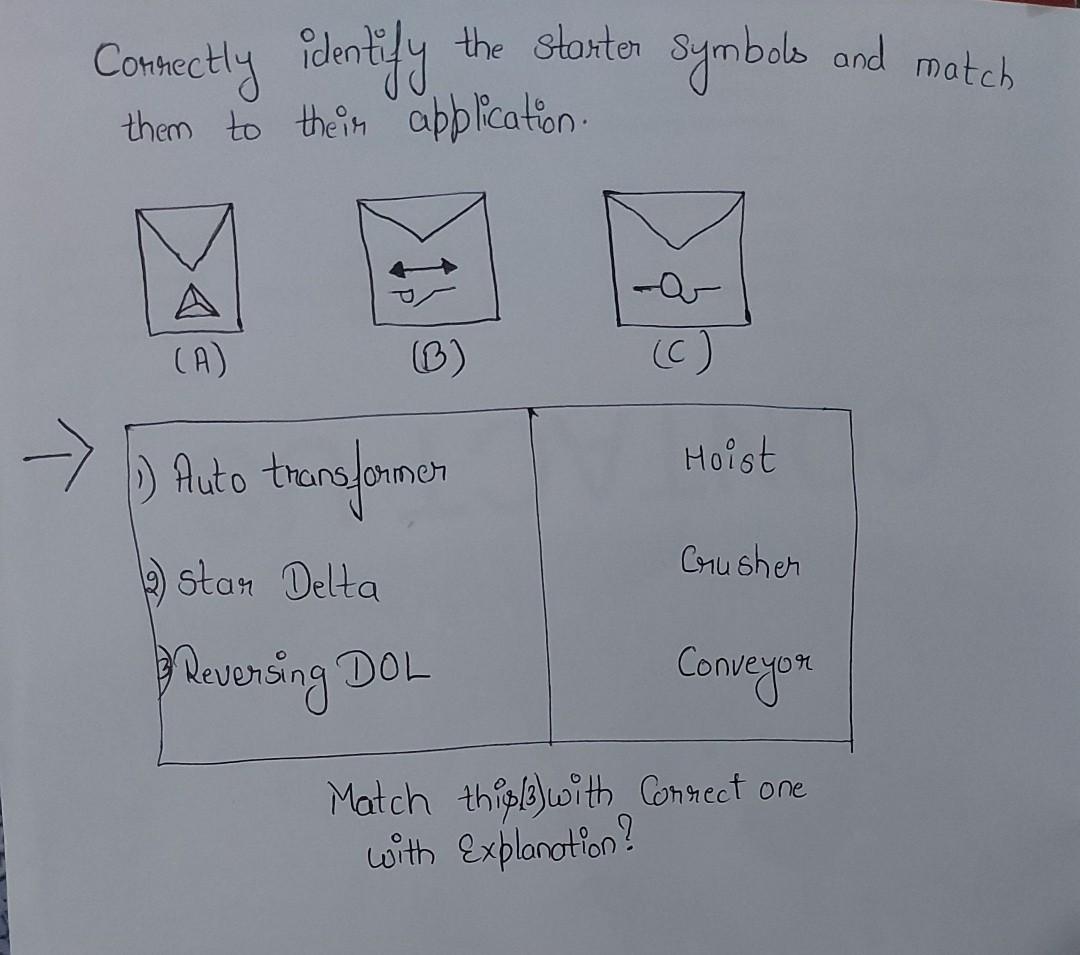 Correctly identify the starter symbols and match
them to their application.
(A) (B) (C)
1) Auto transformer Hoist
2) Star Delta Crusher
3) Reversing DOL Conveyor
Match this(3) with Correct one
with Explanation?